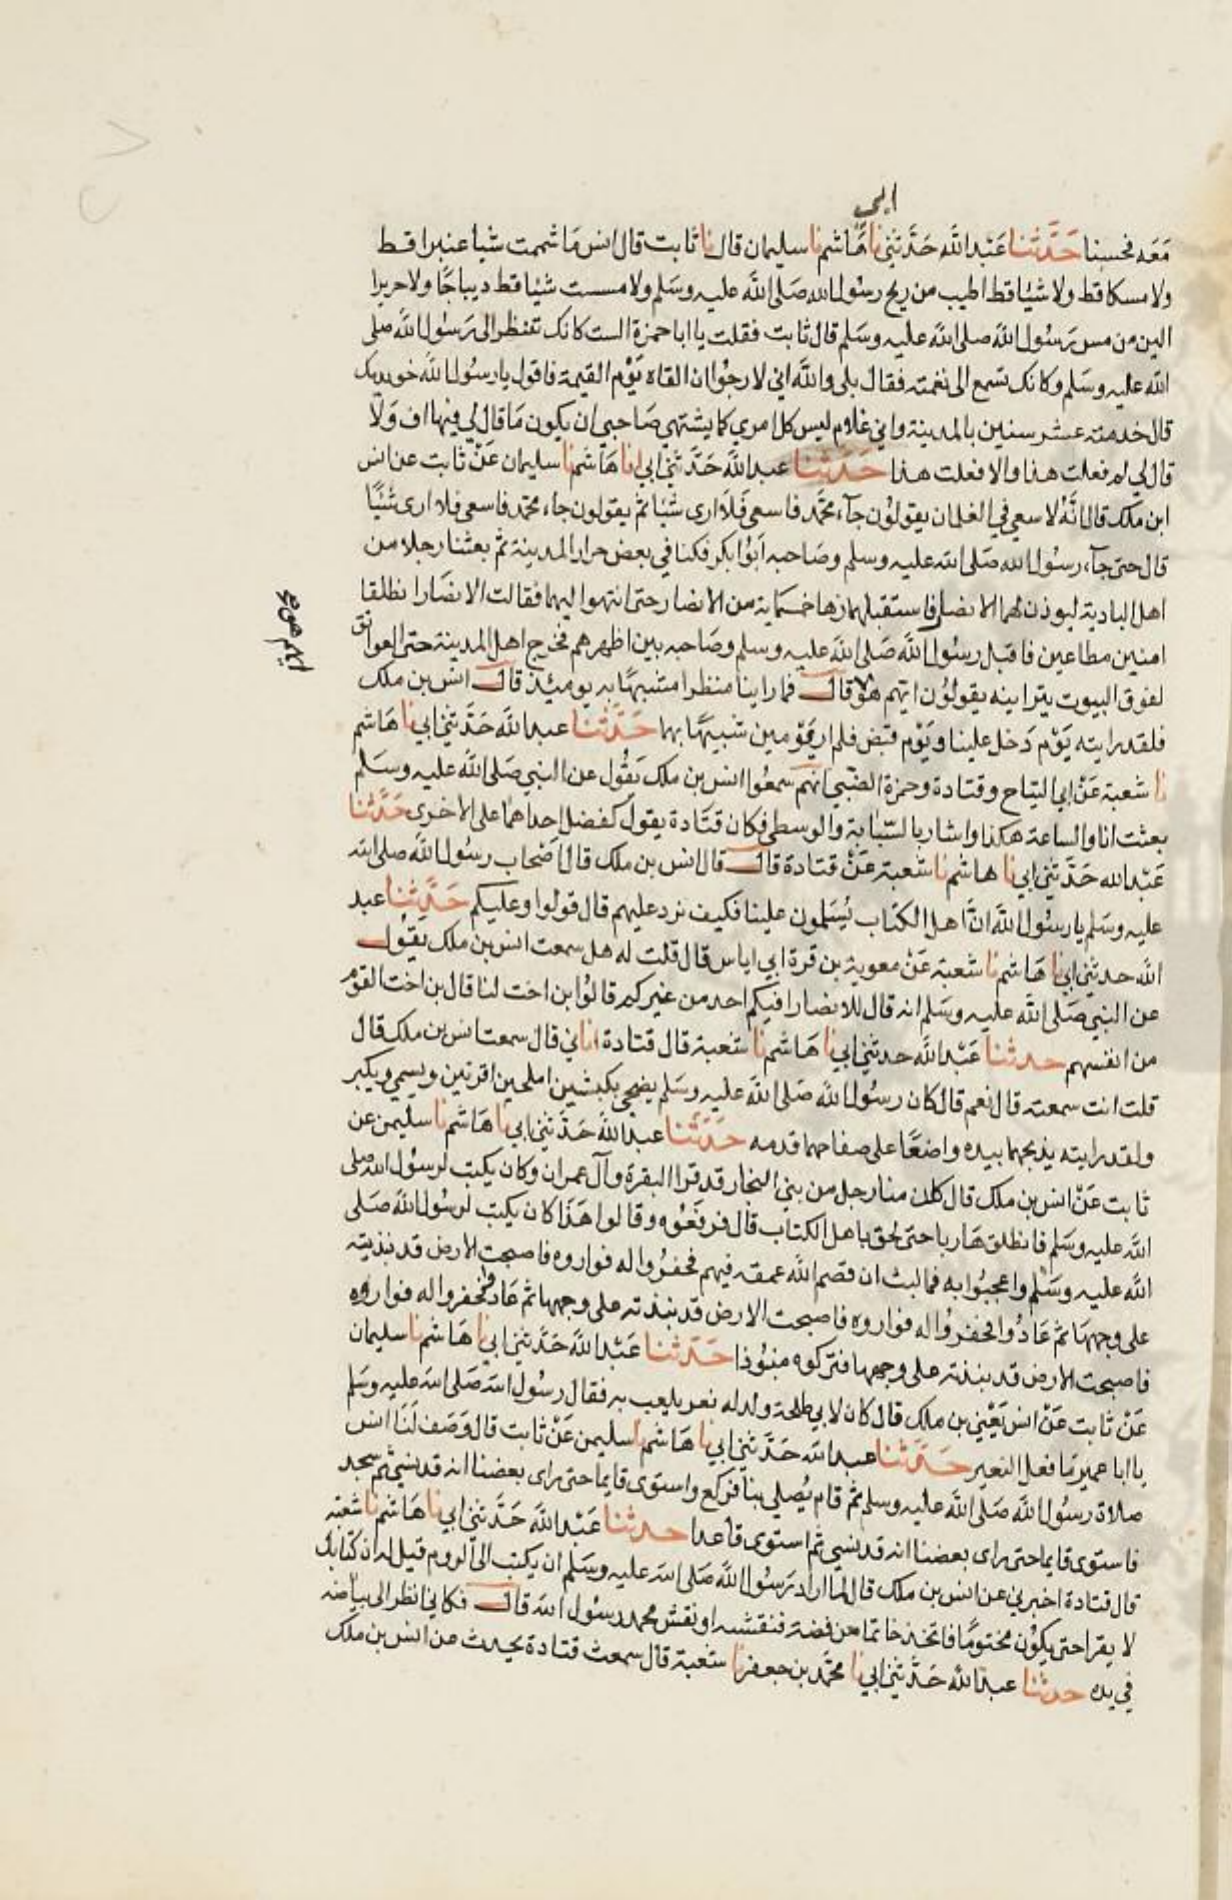 ابي
مَعَه فحسبنا حَدَّثنا عَبْد الله حَدَّثني نا هَاشم نا سليمان قال نا ثابت قال انس مَا شممت شيا عنبرا قط
ولا مسكا قط ولا شيئا قط اطيب من ريح رسُول الله صَلى الله عليه وسَلم ولا مسست شيئا قط ديباجًا ولا حريرا
الين من مس رَسُول الله صلى الله عليه وسَلم قال ثابت فقلت يا ابا حمزة الست كانك تنظر الى رَسُول الله صَلى
الله عليه وسَلم وكانك تسمع الى نغمته فقال بلى والله اني لا رجوا ان القاه يَوْم القيمة فاقول يا رسُول الله خويدمك
قال خدمته عشر سنين بالمدينة واني غلام ليس كل امري كما يشتهي صَاحبي ان يكون مَا قال لي فيها اف وَلا
قال لي لم فعلت هذا والا فعلت هذا حَدَّثنا عبد الله حَدَّثني ابي انا هَاشم نا سليمان عَنْ ثابت عن انس
ابن ملك قال انَّهُ لا سعى في الغلمان يقولُون جآء محمَّد فاسعى فَلا ارى شَيْا ثمَّ يقولون جاء محمّد فاسعى فلا ارى شَيْئًا
قال حتى جآء رسُول الله صَلى الله عليه وسلم وصَاحبه اَبُوا بكر فكنا في بعض حرار المدينة ثمّ بعثنا رجلا من
اهل البادية ليوذن لهما الانصار فاستقبلهما زهاخسماية من الانصار حتى انتهوا اليهما فقالت الانصَار انطلقا
امنين مطاعين فاقبل رسُول الله صَلى الله عليه وسلم وصَاحبه بين اظهرهم فخرج اهل المدينة حتى العواتق
لفوق البيوت يتراينه يقولوُن ايهم هوُ قال فما راينا منظرا مشبهًا به يوميئذ قال انس بن ملك
فلقد رايته يَوْم دَخل علينا ويَوْم قبض فلم ار يَوْمين شبيهًا بهما حَدَّثنا عبد الله حَدَّثني ابي نا هَاشم
نا شعبة عَنْ ابي التيّاح وقتادة وحمزة الضّبي انهم سمعُوا انس بن ملك يَقُول عن النبي صَلى الله عليه وسَلم
بعثت انا والساعة هكذا واشار بالسّبّابة والوسطى فكان قتَادة يقول كفضل احداهمَا على الاخرى حَدَّثنا
عَبْد الله حَدَّثني ابي نا هاشم نا شعبة عَنْ قتادة قال قال انس بن ملك قال اصْحاب رسُول الله صلى الله
عليه وسَلم يا رسُول الله انَّ اهل الكتَاب يُسَلمون علينا فكيف نرد عليهم قال قولوا وعليكم حَدَّثنا عبد
الله حدثني ابي نا هَاشم نا شعبة عَنْ معوية بن قرة ابي اياس قال قلت له هل سمعت انس بن ملك يقوُل
عن النبي صَلى الله عليه وسَلم انه قال للانصار افيكم احد من غيركم قالوُا ابن اخت لنا قال بن اخت القوْم
من انفسهم حدثنا عَبْد الله حدثني ابي نا هَاشم نا شعبة قال قتادة انا ني قال سمعت انس بن ملك قال
قلت انت سمعته قال نعم قال كان رسُول الله صَلى الله عليه وسَلم يضحي بكبشين املحين اقرنين ويسمي ويكبر
ولقد رايته يذبحهما بيده واضعًا على صفاحهما قدمه حَدَّثنا عبد الله حَدَّثني ابي نا هَاشم نا سليمن عن
ثابت عَنْ انس بن ملك قال كان منا رجل من بني النجار قد قرا البقرة وآل عمران وكان يكتب لرسُول الله صلى
الله عليه وسَلم فانطلق هَاربا حتى لحق باهل الكتاب قال فرفعُوه وقالوا هَذا كان يكتب لرسُول الله صَلى
الله عليه وسَلم واعجبُوا به فمالبث ان قصم الله عنقه فيهم فحفرُوا له فواروه فاصبحت الارض قد نبذته
على وجههَا ثمّ عَادُوا فحفرُوا له فواروه فاصبحت الارض قد نبذته على وجهها ثمّ عَادوا فحفروا له فواروه
فاصبحت الارض قد نبذته على وجهها فتركوه منبُوذا حَدَّثنا عَبْد الله حَدَّثني ابي نا هَاشم نا سليمان
عَنْ ثابت عَنْ انس يَعْني بن ملك قال كان لابي طلحة ولد له نغر يلعب به فقال رسُول الله صَلى الله عليه وسَلم
يا ابا عمير مَا فعل النغير حَدَّثنا عبد الله حَدَّثني ابي نا هَاشم نا سليمن عَنْ ثابت قال وَصَف لَنَا انس
صلاة رسُول الله صَلى الله عليه وسلم ثمّ قام يُصلي بنا فركع واستوى قايما حتى راى بعضنا انه قد نسي ثم سجد
فاستوى قايما حتى راى بعضنا انه قد نسي ثم استوى قاعدا حدثنا عَبْد الله حَدَّثني ابي نا هَاشم نا شعبة
قال قتادة اخبرني عن انس بن ملك قال لما اراد رَسُول الله صَلى الله عليه وسَلم ان يكتب الى الروم قيل له ان كتابك
لا يقرا حتى يكوُن مختومًا فاتخذ خاتما من فضة فنقشه او نقش محمد رسُول الله قال فكاني انظر الى بيَاضه
في يده حدثنا عبد الله حَدَّثني ابي نا محمَّد بن جعفر نا شعبة قال سمعت قتادة يحدث عن انس بن ملك